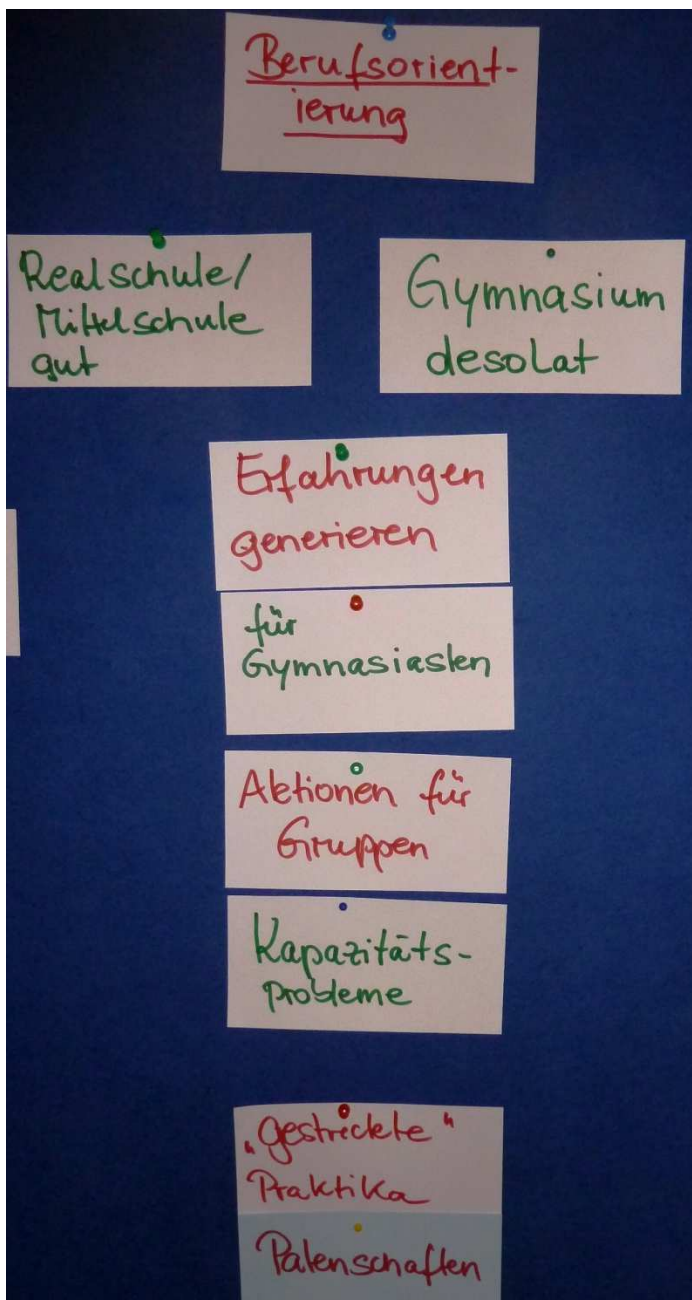 Berufsorient-
ierung
Realschule/
Mittelschule
gut
Gymnasium
desolat
Erfahrungen
generieren
für
Gymnasiasten
Aktionen für
Gruppen
Kapazitäts-
probleme
„gestrickte"
Praktika
Patenschaften